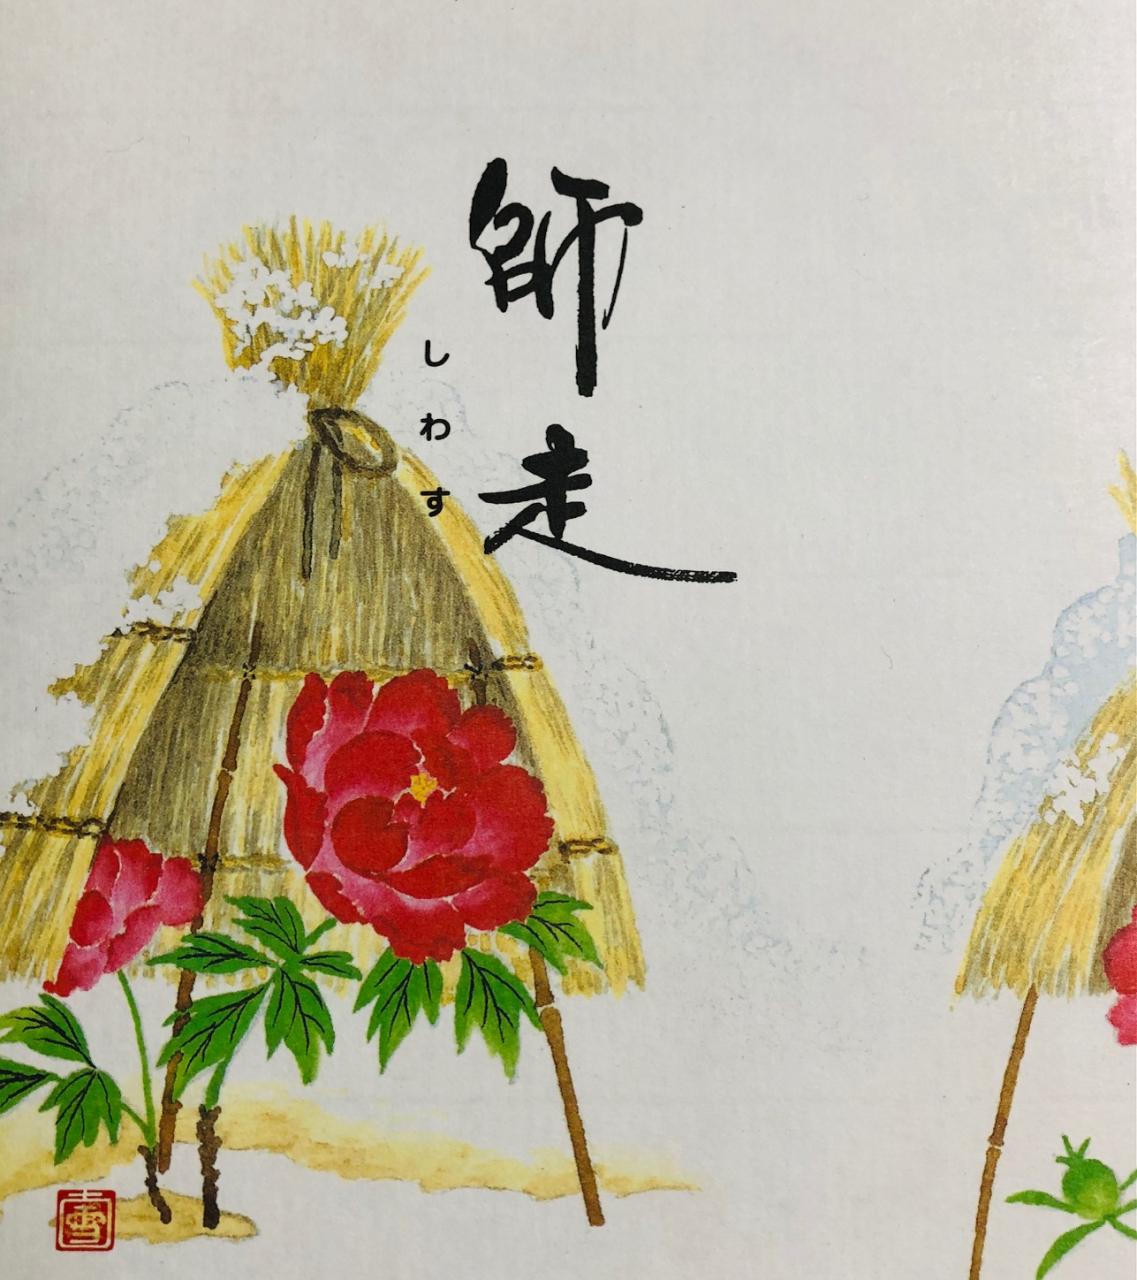 師走
しわす